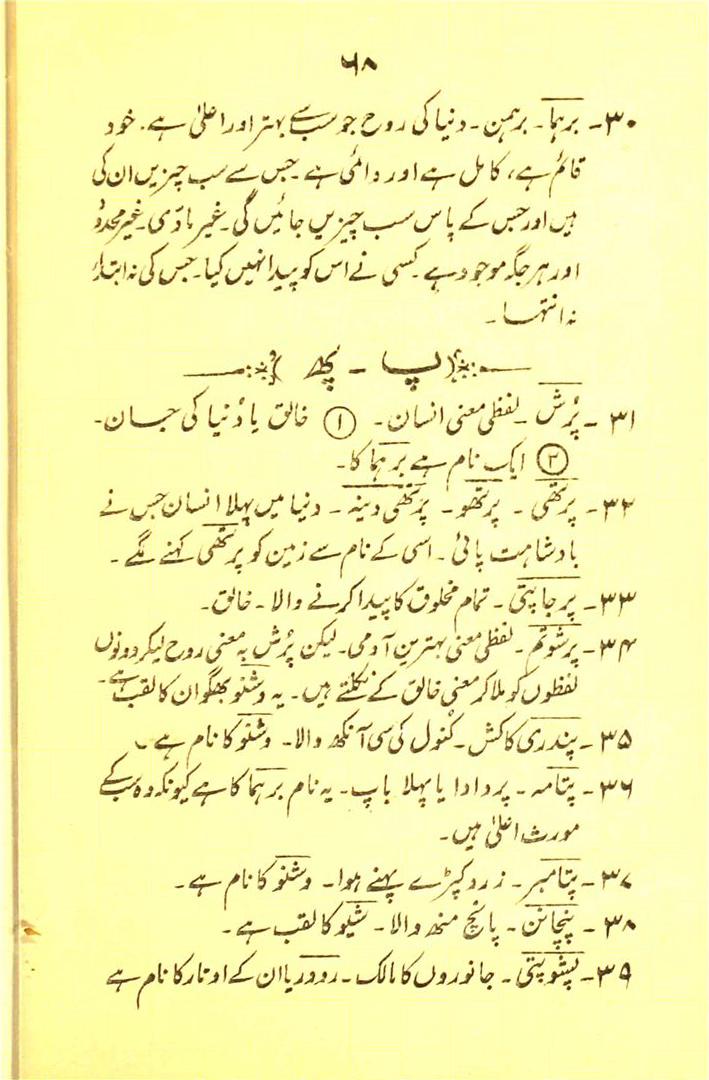 ۶۸
۳۰۔ برہما۔ برہمن۔ دنیا کی روح جو سب سے بہتر اور اعلیٰ ہے۔ خود
قائم ہے، کامل ہے اور دائمی ہے جس سے سب چیزیں ان کی
ہیں اور جس کے پاس سب چیزیں جائیں گی۔ غیر مادّی۔ غیر محدود
اور ہر جگہ موجود ہے۔ کسی نے اس کو پیدا نہیں کیا۔ جس کی نہ ابتدا
نہ انتہا۔
پ ۔ پھ
۳۱۔ پُرش۔ لفظی معنی انسان۔ ① خالق یا دُنیا کی جان۔
② ایک نام ہے برہما کا۔
۳۲۔ پرتھی۔ پرتھو۔ پرتھی دینہ۔ دنیا میں پہلا انسان جس نے
بادشاہت پائی۔ اسی کے نام سے زمین کو پرتھی کہنے لگے۔
۳۳۔ پرجاپتی۔ تمام مخلوق کا پیدا کرنے والا۔ خالق۔
۳۴۔ پرشوتم۔ لفظی معنی بہترین آدمی۔ لیکن پُرش بہ معنی روح لیکر دونوں
لفظوں کو ملا کر معنی خالق کے نکلتے ہیں۔ یہ وشنو بھگوان کا لقب ہے۔
۳۵۔ پندری کاکش۔ کنول کی سی آنکھ والا۔ وشنو کا نام ہے۔
۳۶۔ پتامہ۔ پردادا یا پہلا باپ۔ یہ نام برہما کا ہے کیونکہ وہ سب کے
مورث اعلیٰ ہیں۔
۳۷۔ پتامبر۔ زرد کپڑے پہنے ہوا۔ وشنو کا نام ہے۔
۳۸۔ پنچانن۔ پانچ منھ والا۔ شیو کا لقب ہے۔
۳۹۔ پشوپتی۔ جانوروں کا مالک۔ رودر یا ان کے اوتار کا نام ہے